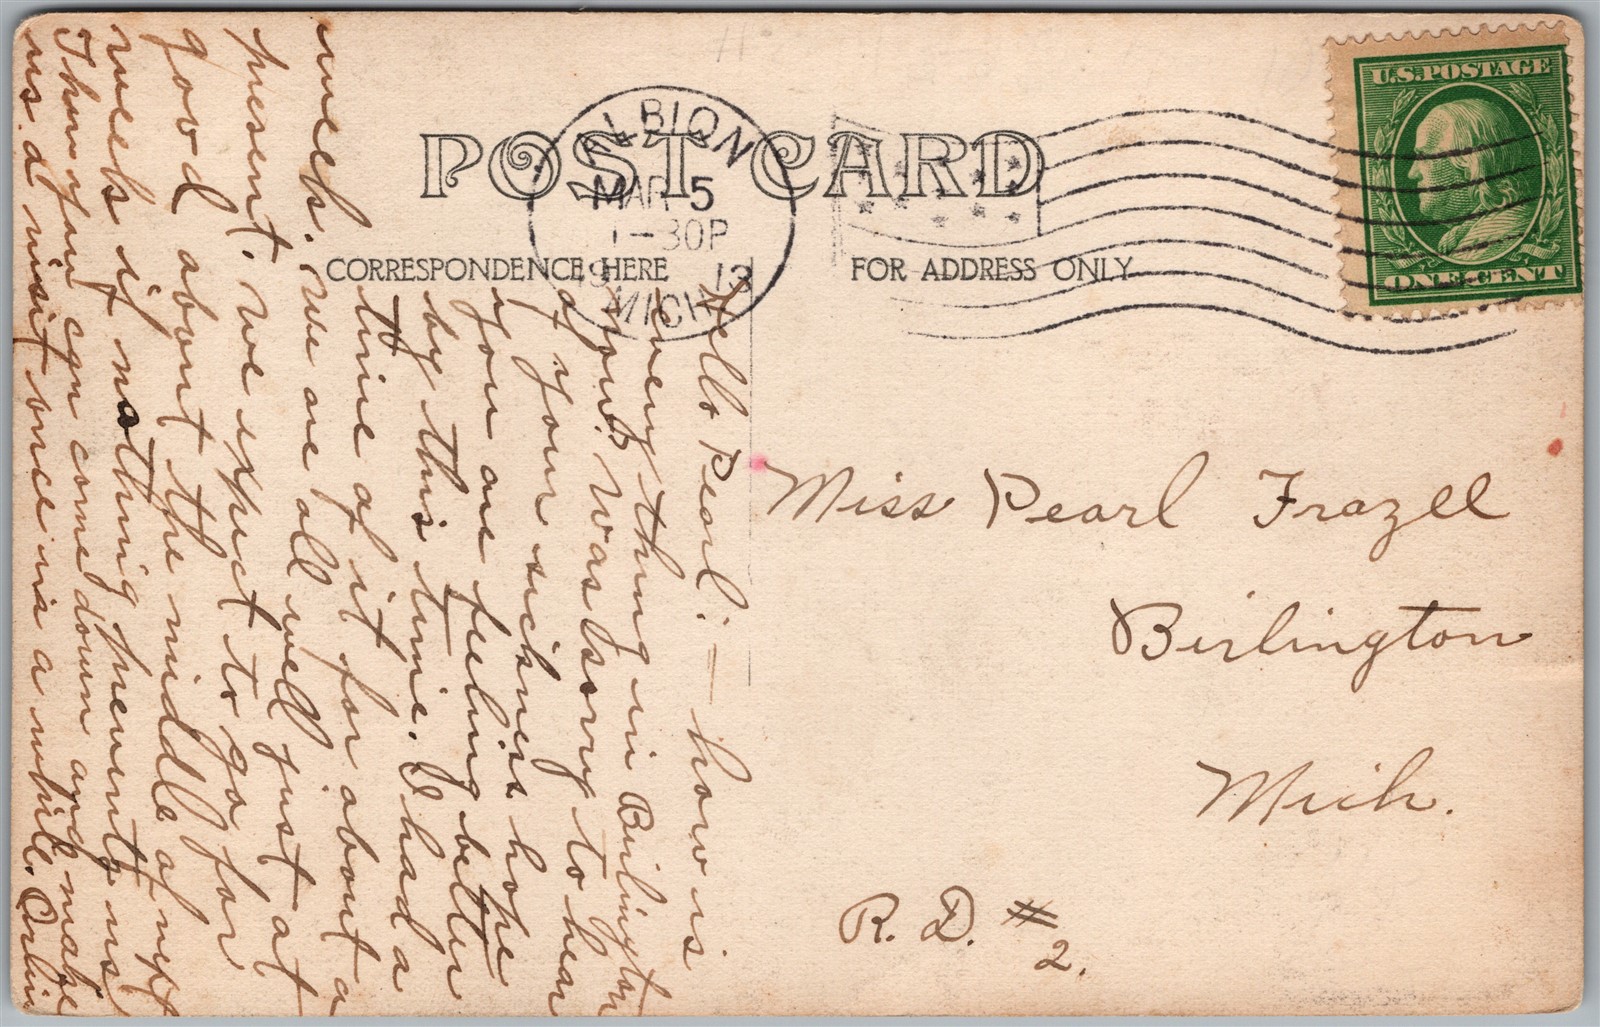 POST CARD
CORRESPONDENCE HERE
FOR ADDRESS ONLY
ALBION
MAR 5
1-30P
1913
MICH
U.S.POSTAGE
ONE CENT
Hello Pearl:— how is
every thing in Burlington
now? Was sorry to hear
of your sickness hope
you are feeling better
by this time. I had a
time of it for about a
week. We are all well just at
present. We expect to go for
good about the middle of next
week if nothing prevents us
Then you can come down and make
us a visit once in a while. Orlin
Miss Pearl Frazell
Birlington
Mich.
R. D. # 2.